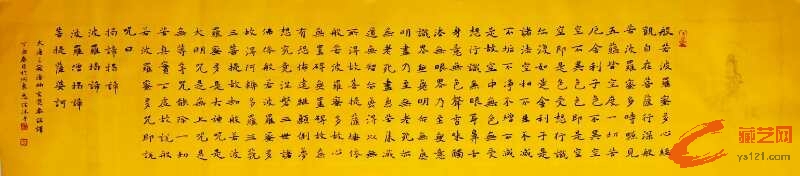 般若波羅蜜多心經
觀自在菩薩行深般
若波羅蜜多時照見
五蘊皆空度一切苦
厄舍利子色不異空
空不異色色即是空
空即是色受想行識
亦復如是舍利子是
諸法空相不生不滅
不垢不淨不增不減
是故空中無色無受
想行識無眼耳鼻舌
身意無色聲香味觸
法無眼界乃至無意
識界無無明亦無無
明盡乃至無老死亦
無老死盡無苦集滅
道無智亦無得以無
所得故菩提薩埵依
般若波羅蜜多故心
無罣礙無罣礙故無
有恐怖遠離顛倒夢
想究竟涅槃三世諸
佛依般若波羅蜜多
故得阿耨多羅三藐
三菩提故知般若波
羅蜜多是大神咒是
大明咒是無上咒是
無等等咒能除一切
苦真實不虛故說般
若波羅蜜多咒即說
咒曰
揭諦揭諦
波羅揭諦
波羅僧揭諦
菩提薩婆訶
大唐三藏法師玄奘奉詔譯
藏艺网
ys121.com